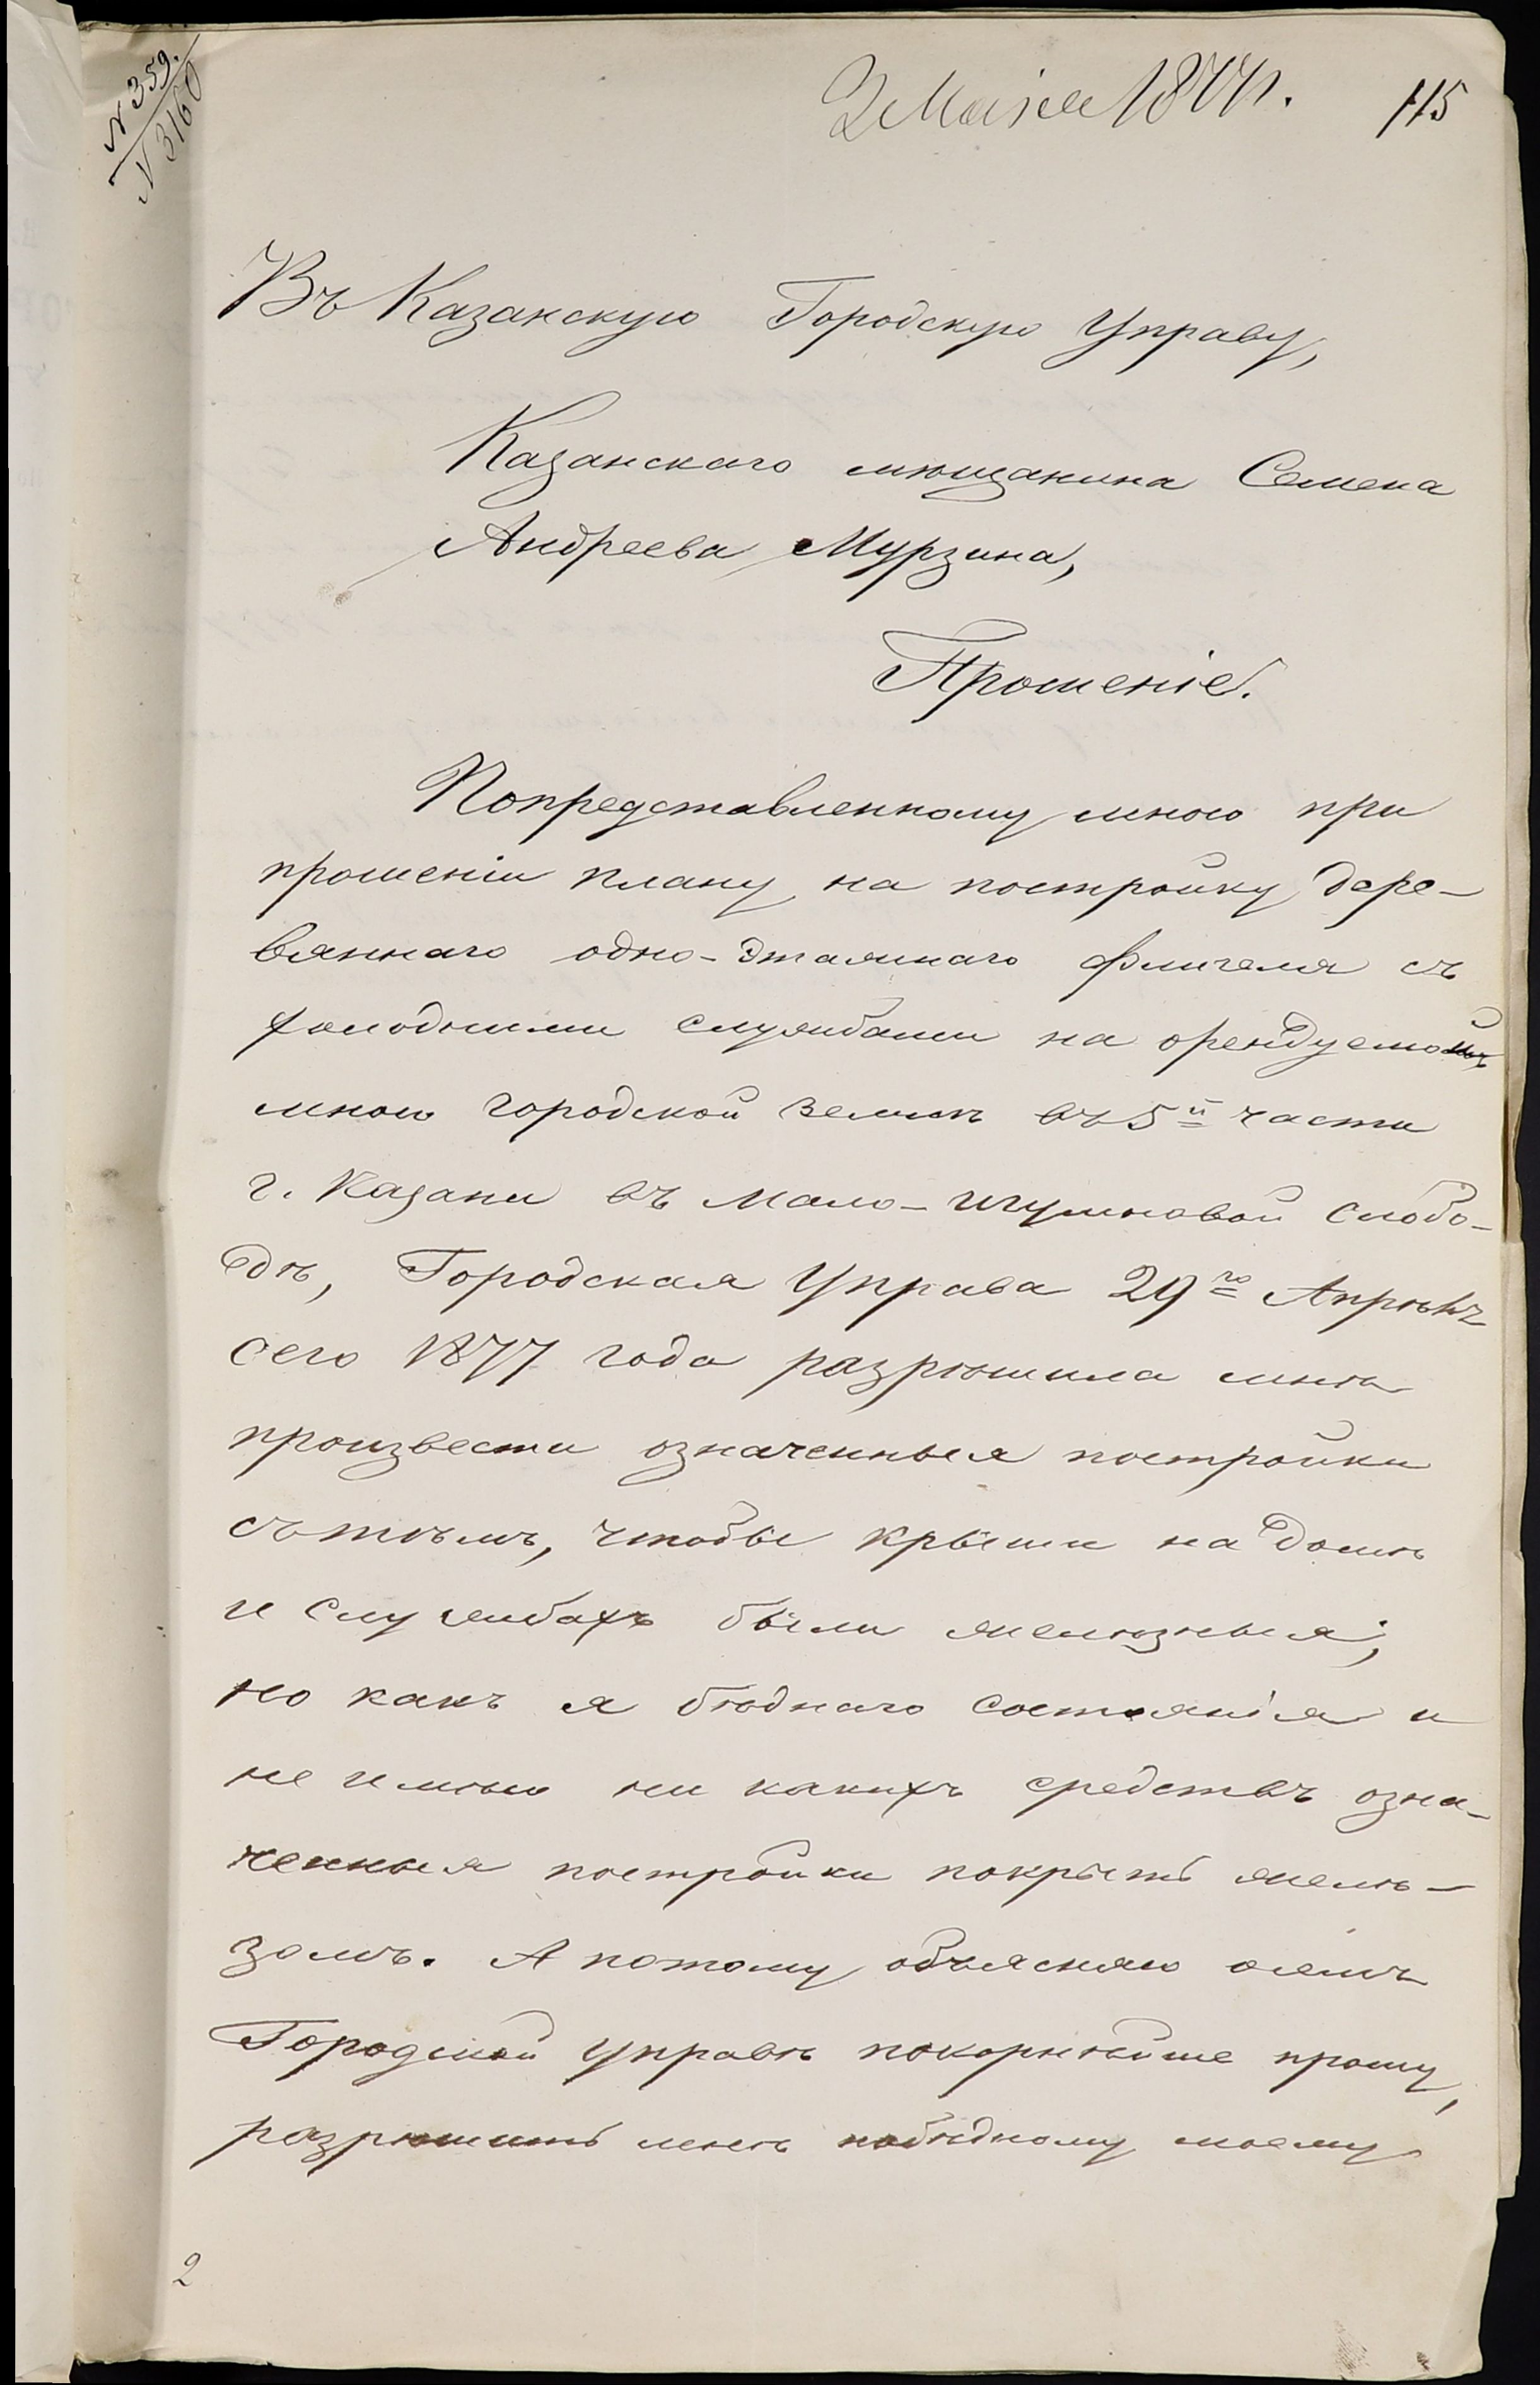 N 359.
N 3160
2 Мая 1877 г.
115
Въ Казанскую Городскую Управу,
Казанскаго мѣщанина Семена
Андреева Мурзина,
Прошеніе.
Попредставленному мною при
прошеніи плану, на постройку дере-
вяннаго одно-этажнаго флигеля съ
холодными службами на орендуемой
мною городской землѣ въ 5й части
г. Казани въ Мало-Игумновой слобо-
дѣ, Городская Управа 29го Апрѣля
сего 1877 года разрѣшила мнѣ
произвести означенныя постройки
съ тѣмъ, чтобы крыши на домѣ
и службахъ были желѣзныя;
но какъ я бѣднаго состоянія и
не имѣю ни какихъ средствъ озна-
ченныя постройки покрыть желѣ-
зомъ. А потому объясняю о семъ
Городской Управѣ покорнѣйше прошу,
разрѣшить мнѣ побѣдному моему
2